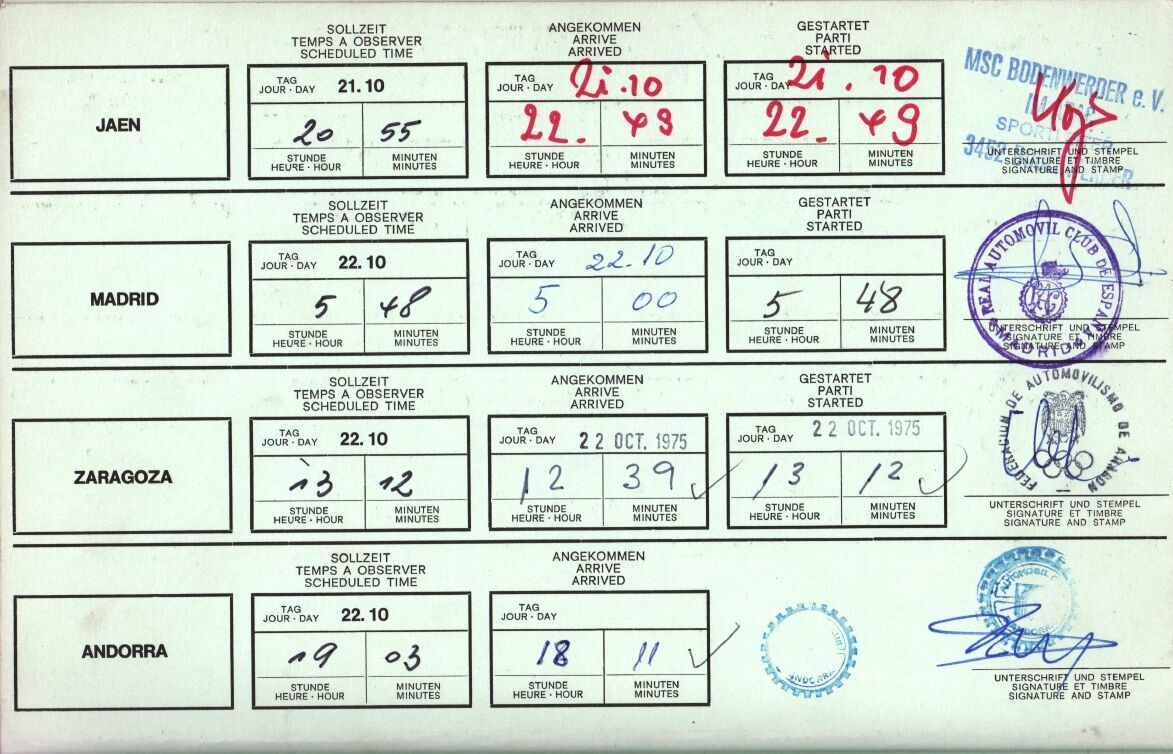 SOLLZEIT
TEMPS A OBSERVER
SCHEDULED TIME
ANGEKOMMEN
ARRIVE
ARRIVED
GESTARTET
PARTI
STARTED
JAEN
TAG
JOUR · DAY 21.10
20 55
STUNDE
HEURE · HOUR
MINUTEN
MINUTES
TAG
JOUR · DAY 21.10
22. 49
STUNDE
HEURE · HOUR
MINUTEN
MINUTES
TAG
JOUR · DAY 21.10
22. 49
STUNDE
HEURE · HOUR
MINUTEN
MINUTES
MSC BODENWERDER e. V.
3452
UNTERSCHRIFT UND STEMPEL
SIGNATURE ET TIMBRE
SIGNATURE AND STAMP
SOLLZEIT
TEMPS A OBSERVER
SCHEDULED TIME
ANGEKOMMEN
ARRIVE
ARRIVED
GESTARTET
PARTI
STARTED
MADRID
TAG
JOUR · DAY 22.10
5 48
STUNDE
HEURE · HOUR
MINUTEN
MINUTES
TAG
JOUR · DAY 22.10
5 00
STUNDE
HEURE · HOUR
MINUTEN
MINUTES
TAG
JOUR · DAY
5 48
STUNDE
HEURE · HOUR
MINUTEN
MINUTES
REAL AUTOMOVIL CLUB DE ESPAÑA
MADRID
UNTERSCHRIFT UND STEMPEL
SIGNATURE ET TIMBRE
SIGNATURE AND STAMP
SOLLZEIT
TEMPS A OBSERVER
SCHEDULED TIME
ANGEKOMMEN
ARRIVE
ARRIVED
GESTARTET
PARTI
STARTED
ZARAGOZA
TAG
JOUR · DAY 22.10
13 12
STUNDE
HEURE · HOUR
MINUTEN
MINUTES
TAG
JOUR · DAY 22 OCT. 1975
12 39
STUNDE
HEURE · HOUR
MINUTEN
MINUTES
TAG
JOUR · DAY 22 OCT. 1975
13 12
STUNDE
HEURE · HOUR
MINUTEN
MINUTES
FEDERACION DE AUTOMOVILISMO DE ARAGON
UNTERSCHRIFT UND STEMPEL
SIGNATURE ET TIMBRE
SIGNATURE AND STAMP
SOLLZEIT
TEMPS A OBSERVER
SCHEDULED TIME
ANGEKOMMEN
ARRIVE
ARRIVED
ANDORRA
TAG
JOUR · DAY 22.10
19 03
STUNDE
HEURE · HOUR
MINUTEN
MINUTES
TAG
JOUR · DAY
18 11
STUNDE
HEURE · HOUR
MINUTEN
MINUTES
ANDORRA
AUTOMOBIL
ANDORRA
UNTERSCHRIFT UND STEMPEL
SIGNATURE ET TIMBRE
SIGNATURE AND STAMP